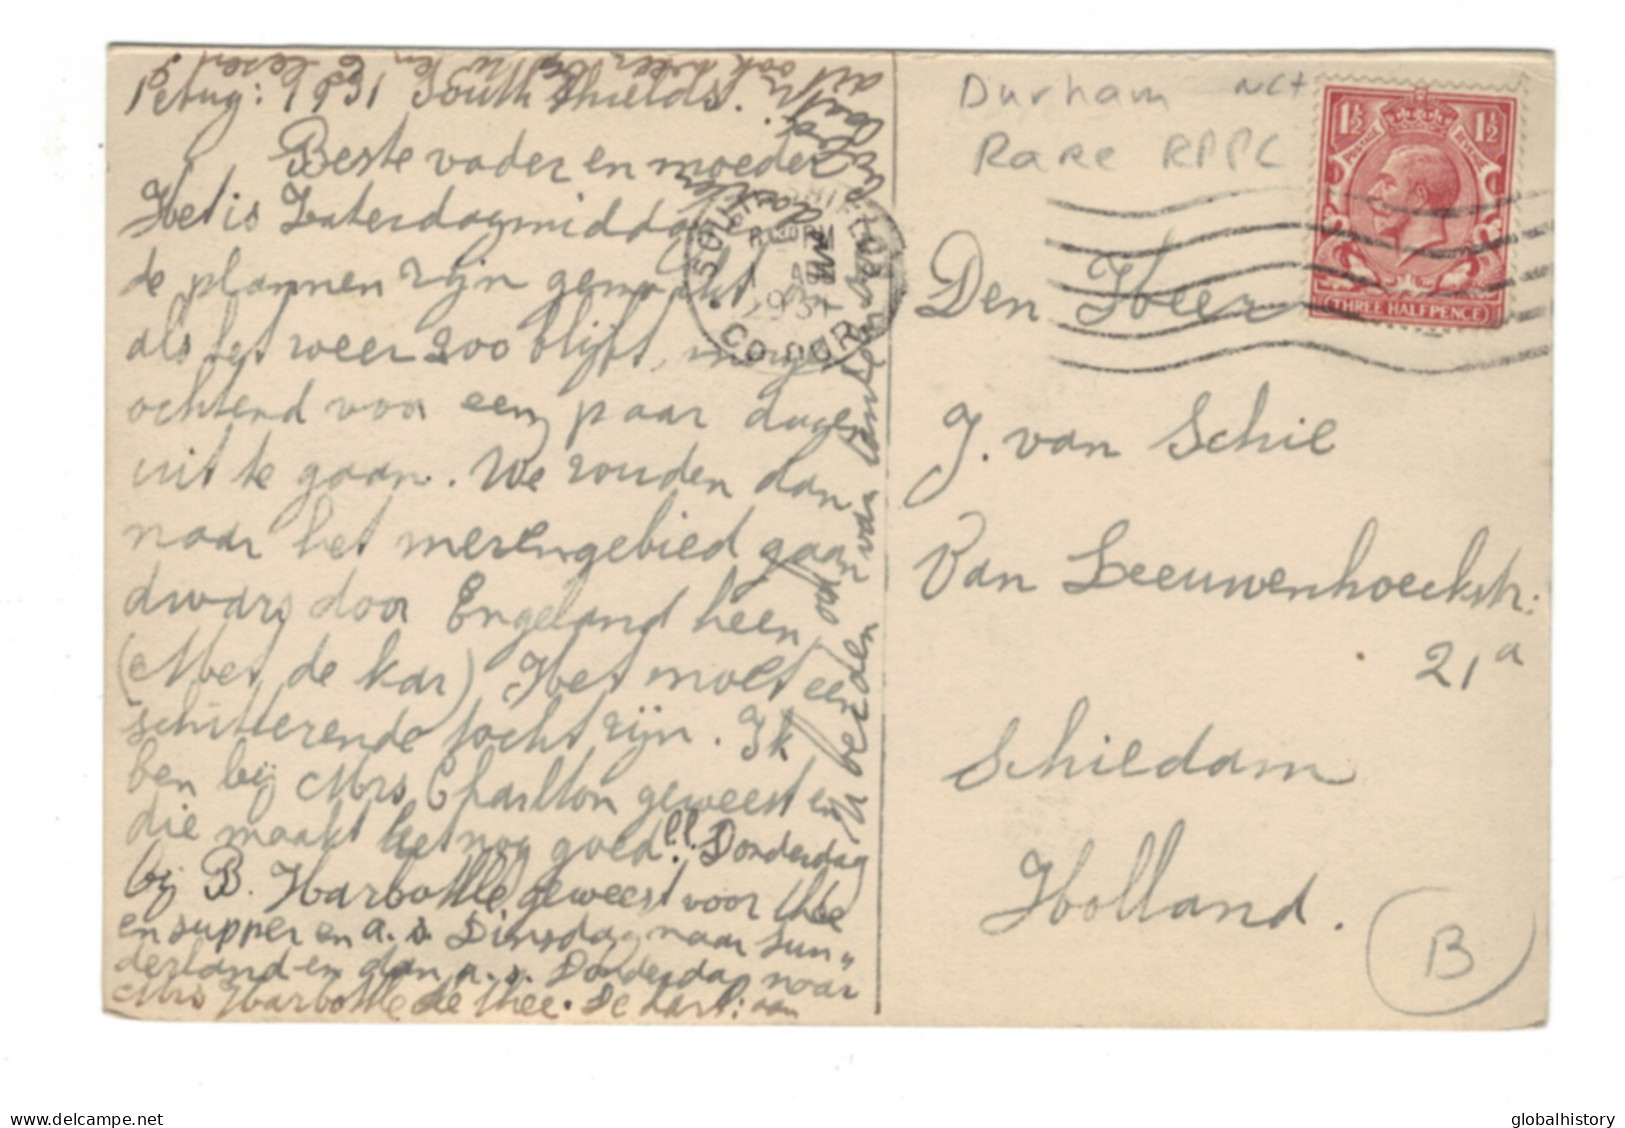 1 Aug: 1931 South Shields.
Beste vader en moeder
Het is Zaterdagmiddag
de plannen zijn gemaakt
als het weer zoo blijft, morgen
ochtend voor een paar dagen
uit te gaan. We zouden dan
naar het merengebied gaan
dwars door Engeland heen
(Met de kar) Het moet een
schitterende tocht zijn. Ik
ben bij Mrs Charlton geweest en
die maakt het nog goed. l.l. Donderdag
bij B. Harbottle geweest voor thee
en supper en a.s. Dinsdag naar Sun„
derland en dan a.s. Donderdag naar
Mrs Harbottle de thee. De hart: aan
U beiden ook van
SOUTH SHIELDS
1 AU
1931
CO. DUR
Durham NCT
Rare RPPC
1½ 1½
POSTAGE REVENUE
THREE HALFPENCE
Den Heer
J. van Schie
Van Leeuwenhoeckstr:
21a
Schiedam
Holland.
B
www.delcampe.net
globalhistory